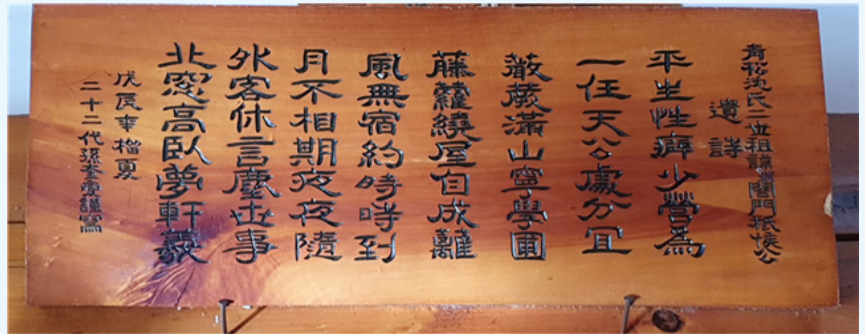 青松沈氏二世祖諱淵閤門祗侯公
遺詩
平生性癖少營為
一任天公處分宜
薇蕨滿山寧學圃
藤蘿繞屋自成離
風無宿約時時到
月不相期夜夜隨
外客休言塵世事
北窓高臥夢軒羲
戊辰年榴夏
二十二代孫奎謹寫